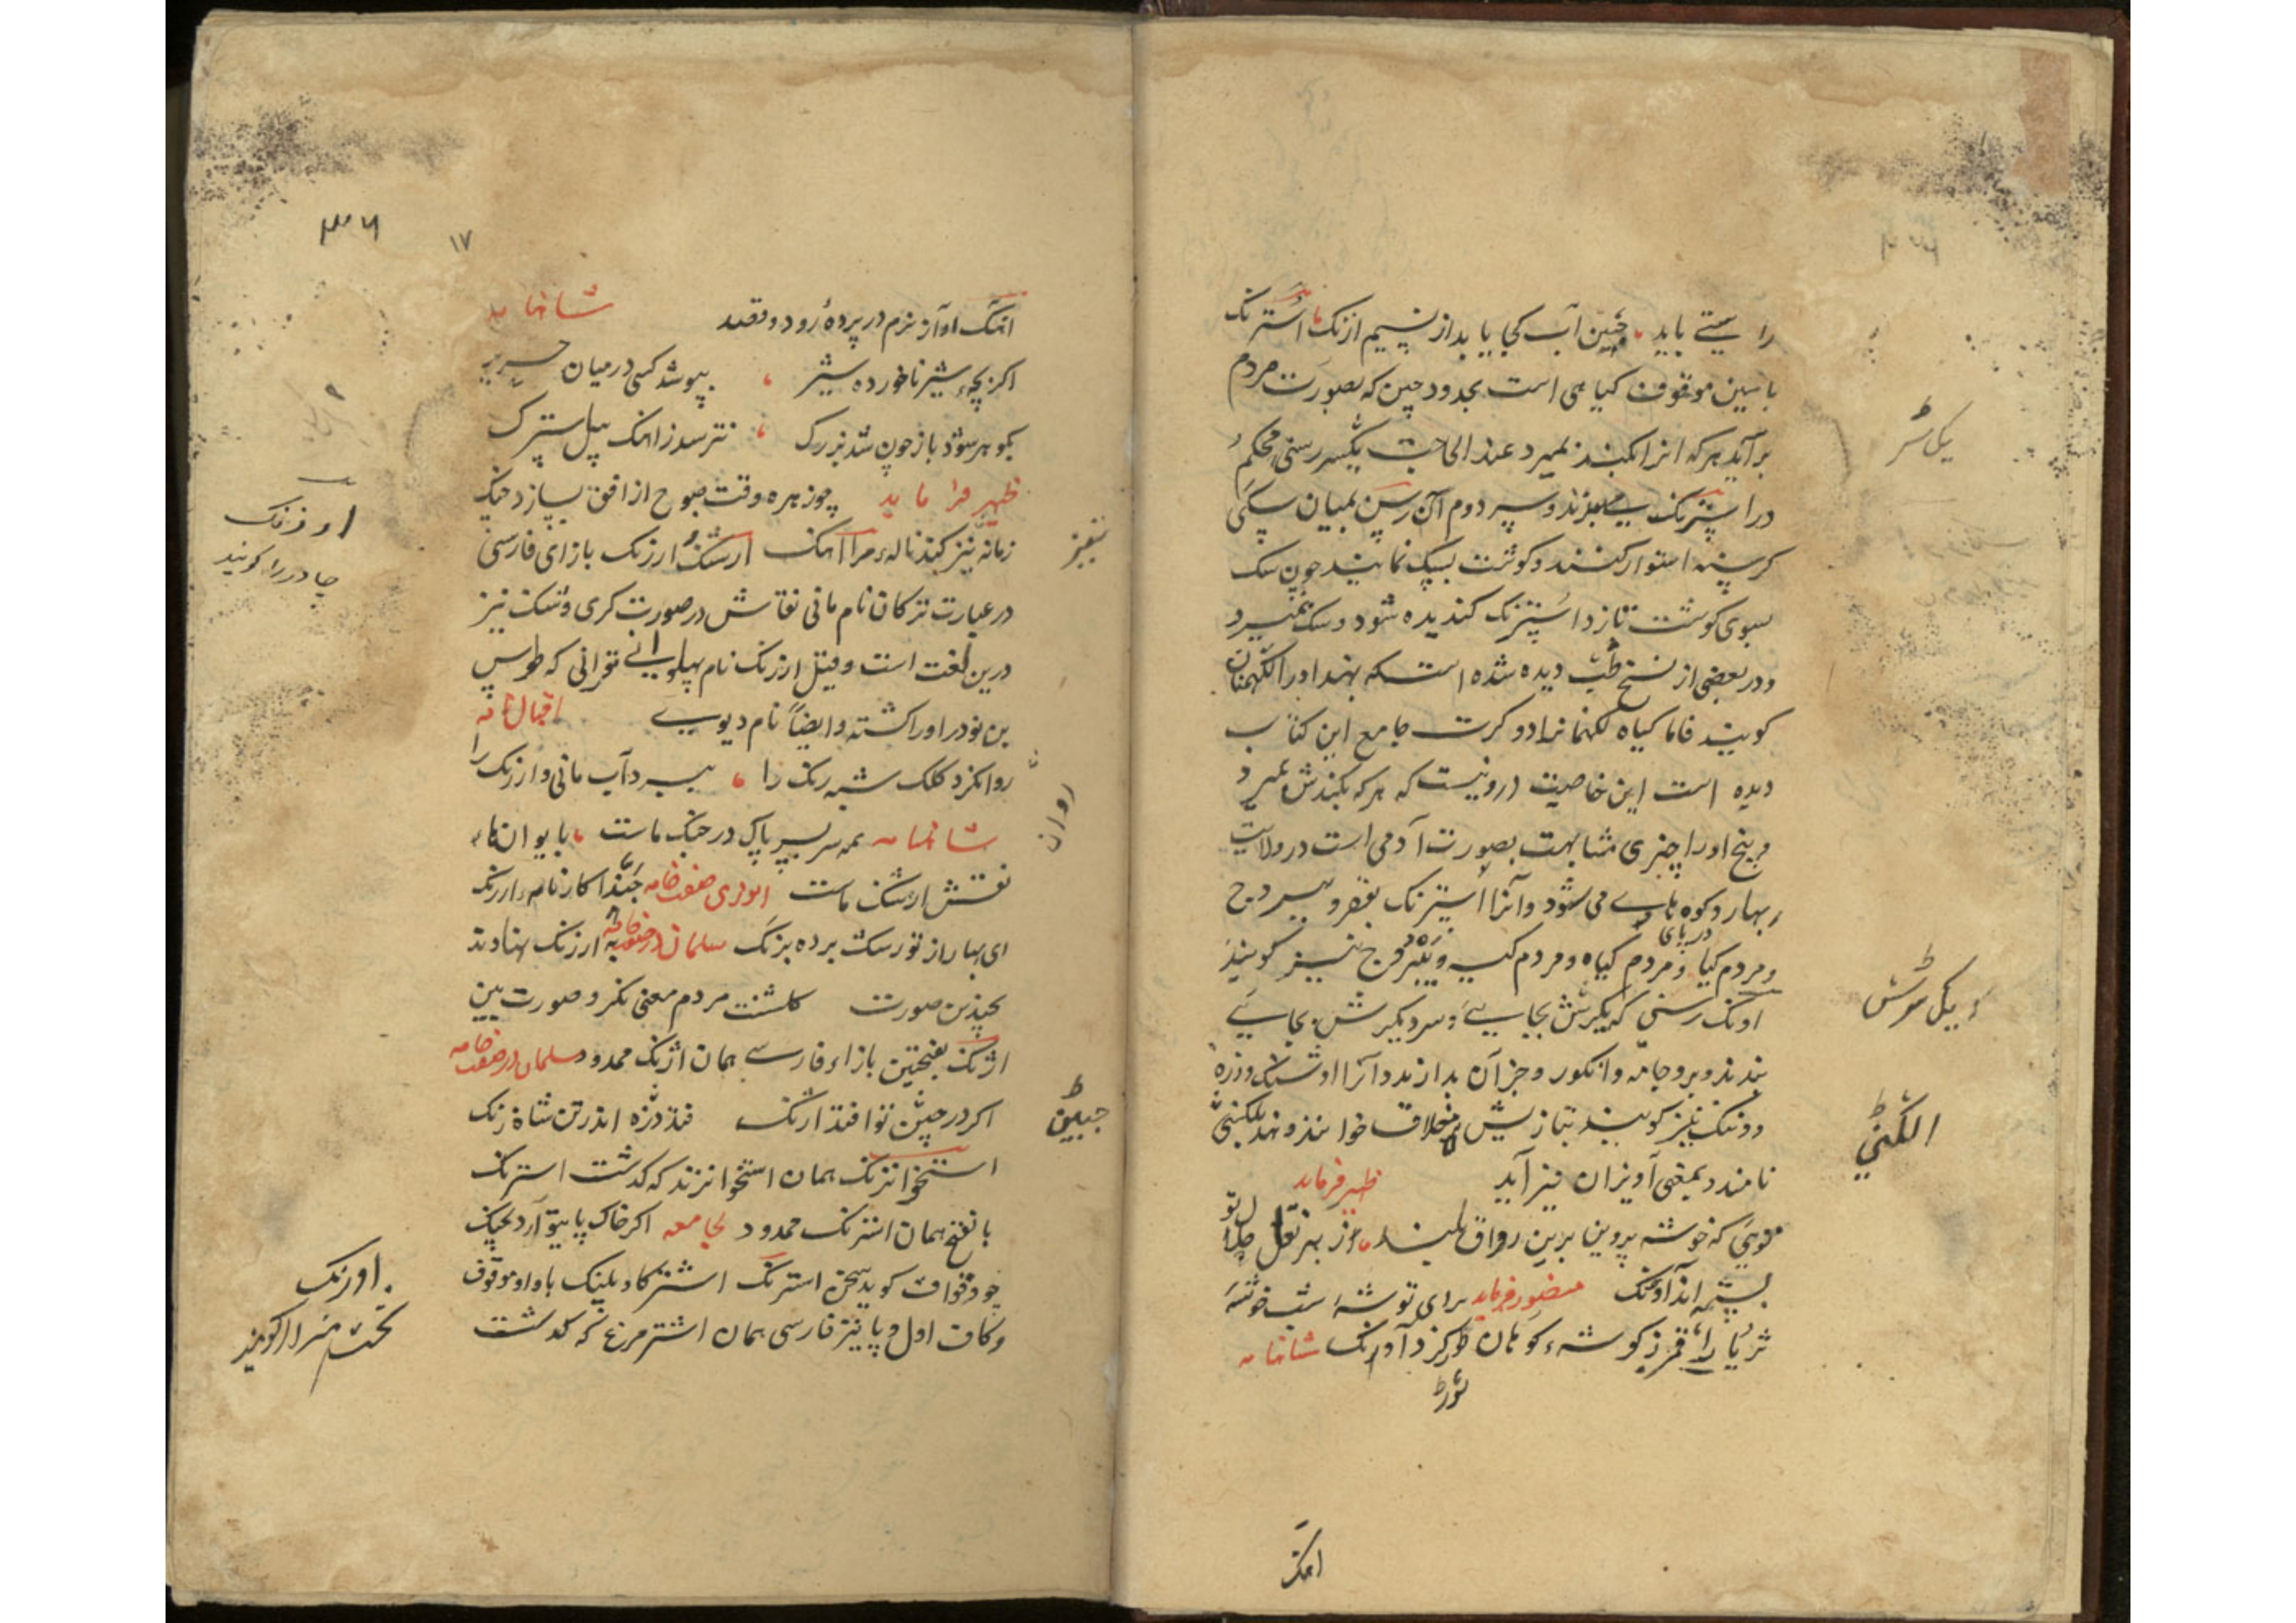 را سیتے باید چنین آب کجا یابد از نسیم ازنک استرنک
با سین موقوف کیاهی است بحدود چین که بصورت مردم
برآید هر که انرا بکند بمیرد عند الحاجت یکسر رسنی محکم
در استرنک می‌بندند و سر دوم آن رسن بمیان سکی
کرسنه استوار کنند و کوشت بسک نمایند چون سک
بسوی کوشت تازد استرنک کندیده شود و سک بمیرد
ودر بعضی از نسخ طب دیده شده است که بهند اورا لکهمنان
کویند فاما کیاه لکهمنا نرا دو کرت جامع این کتاب
دیده است این خاصیت درو نیست که هر که بکندش بمیرد
و بیخ اورا چیزی مشابهت بصورت آدمی است در ولایت
بهار و کوه های می شود و آنرا استرنک بقصر و سیبروح
در پای
و مردم کیا و مردم کیاه و مردم کیه و یبروح نیز کویند
اونک رسنی که یکسرش بجایی و سر دیکرش بجایی
بندند و برو جامه و انکور و جز آن بدارند و آنرا اوشنک و دره
و ونک نیز کویند بتازیش مخلاف خوانند و بهند بلکنی
نامند و بمعنی آویزان نیز آید ظهیر فرماید
قویی که خوشه پروین برین رواق بلند ز بهر نقل جلال تو
بسته اند آونک منصور فرماید برای توشه شب خوشه
ثریا را قمر ز کوشه کوهان ثور کرد آونک شاهنامه
ثور
اهنک
یک سر
دیکر سرش
الکنی
۳۶
۱۷
اهنک آواز نرم در پرده رود و قصد شاهنامه
اکر بچه شیر ناخورده شیر بپوشد کسی درمیان حریر
بکوهر شود باز چون شد بزرک نترسد ز اهنک پیل سترک
ظهیر فرماید چو زهره وقت صبوح از افق بسازد چنک
زمانه تیز کند ناله مرا آهنک ارتنک و ارژنک بازای فارسی
در عبارت ترکان نام مانی نقاش در صورت کری و تنک نیز
درین لغت است و قیل ارژنک نام پهلوانی تورانی که طوس
بن نوذر اورا کشته و ایضاً نام دیوی اقبالنامه
روا نکرد کلک شبه رنک را ببرد آب مانی و ارژنک را
شاهنامه همه سربسر پاک در جنک ماست بایوانها
نقش ارتنک ماست انوری صفت خامه حبذا کارنامه ارژنک
ای بهار از تو رشک برده برنک سلمان در صفت خامه به ارژنک نهادند
بچندین صورت کلشنت مردم معنی نکر و صورت بین
اژنک بفتحتین بازاء فارسی همان آژنک ممدود سلمان در صفت خامه
اکر در جبین تو افتد اژنک فتد لرزه اندر تن شاه زنک
استخوانرنک همان استخوانرند که کذشت استرنک
بالفتح همان آسترنک ممدود لجامعه اکر خاک پایت آرد بچنک
چو وقواق کوید سخن استرنک اشترکاو پلنک با واو موقوف
وکاف اول و پا نیز فارسی همان اشتر مرغ که کذشت
تیز
روان
جبین
اورنک
چادر را کویند
اورنک
تخت را کویند